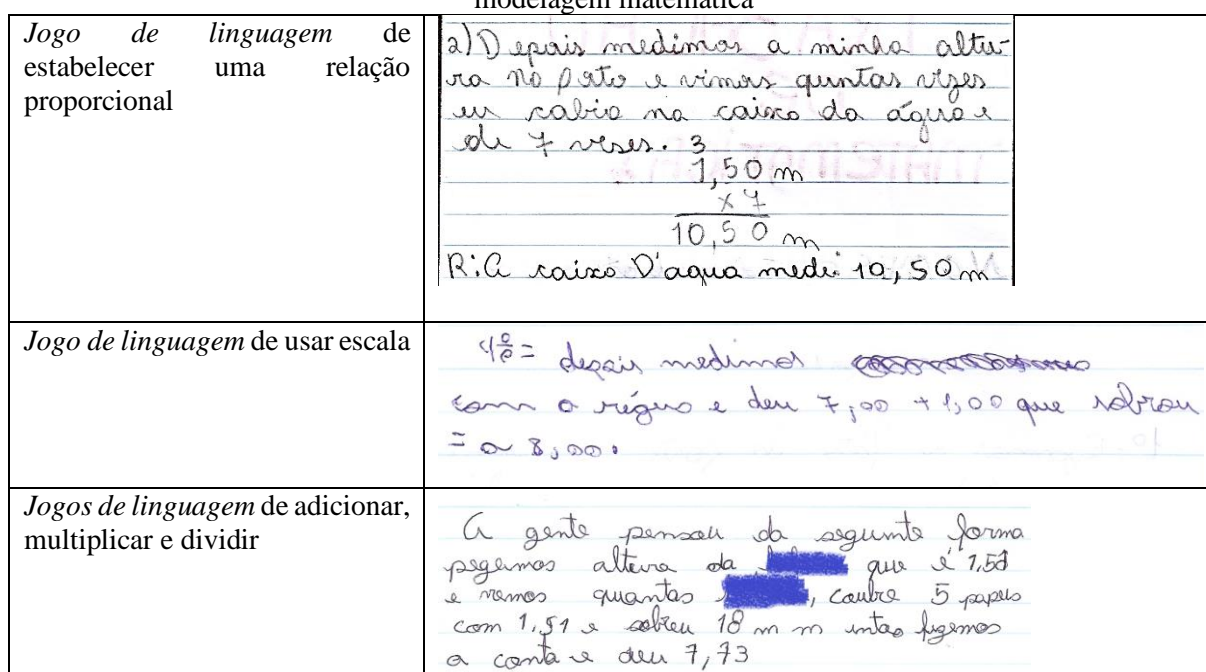 modelagem matemática
Jogo de linguagem de
estabelecer uma relação
proporcional
2) Depois medimos a minha altu-
ra no pato e vimos quntas vezes
eu cabia na caixa da água e
de 7 veses. 3
1,50 m
x 7
10,50 m
R: A caixa D'agua medi 10,50 m
Jogo de linguagem de usar escala
4º = depois medimos
com a régua e deu 7,00 + 1,00 que sobrou
= a 8,00.
Jogos de linguagem de adicionar,
multiplicar e dividir
A gente pensou da segunte forma
pegamos altura da que é 1,51
e vemos quantas , coube 5 papeis
com 1,51 e sobrou 18 m m intão fizemos
a conta e deu 7,73